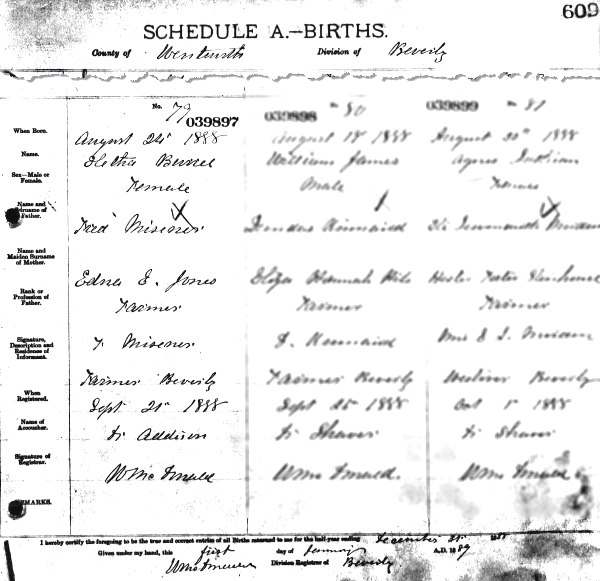 609
SCHEDULE A.—BIRTHS.
County of Wentworth Division of Beverly
No. 79 80 81
039897 039898 039899
When Born. August 24 1888 August 18 1888 August 30 1888
Name. Bernel William James Agnes
Sex—Male or Female. Female Male Female
Name and Surname of Father. Fred Misener Kinnaird
Name and Maiden Surname of Mother. Edna E. Jones Eliza Hannah Hester
Rank or Profession of Father. Farmer Farmer Farmer
Signature, Description and Residence of Informant. F. Misener Kinnaird Mrs
Farmer Beverly Farmer Beverly Beverly
When Registered. Sept 25 1888 Sept 25 1888 Oct 1 1888
Name of Accoucher. Dr Addison Dr Shaver Dr Shaver
Signature of Registrar. Wm McDonald Wm McDonald. Wm McDonald
REMARKS.
I hereby certify the foregoing to be the true and correct entries of all Births returned to me for the half-year ending December 31st 1888
Given under my hand, this first day of January A.D. 1889
Division Registrar of Beverly